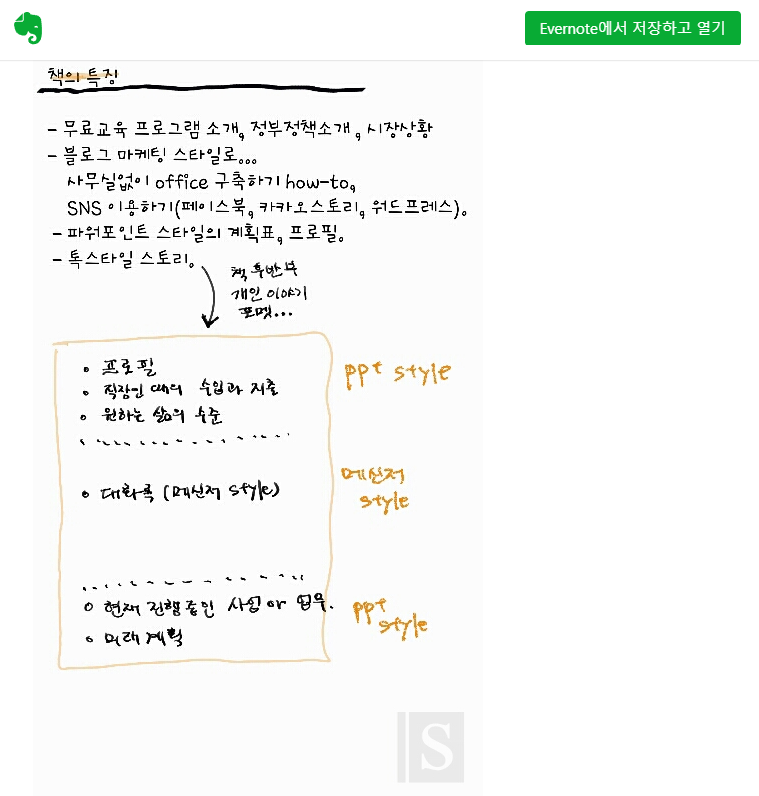 Evernote에서 저장하고 열기
책의 특징
- 무료교육 프로그램 소개, 정부정책소개, 시장상황
- 블로그 마케팅 스타일로...
사무실없이 office 구축하기 how-to,
SNS 이용하기(페이스북, 카카오스토리, 워드프레스).
- 파워포인트 스타일의 계획표, 프로필.
- 톡스타일 스토리.
책 후반부
개인 이야기
포맷...
• 프로필
• 직장인 때의 수입과 지출
• 원하는 삶의 수준
ppt style
• 대화록 (메신저 style)
메신저
style
• 현재 진행중인 사업 or 업무.
• 미래 계획
ppt
style
S